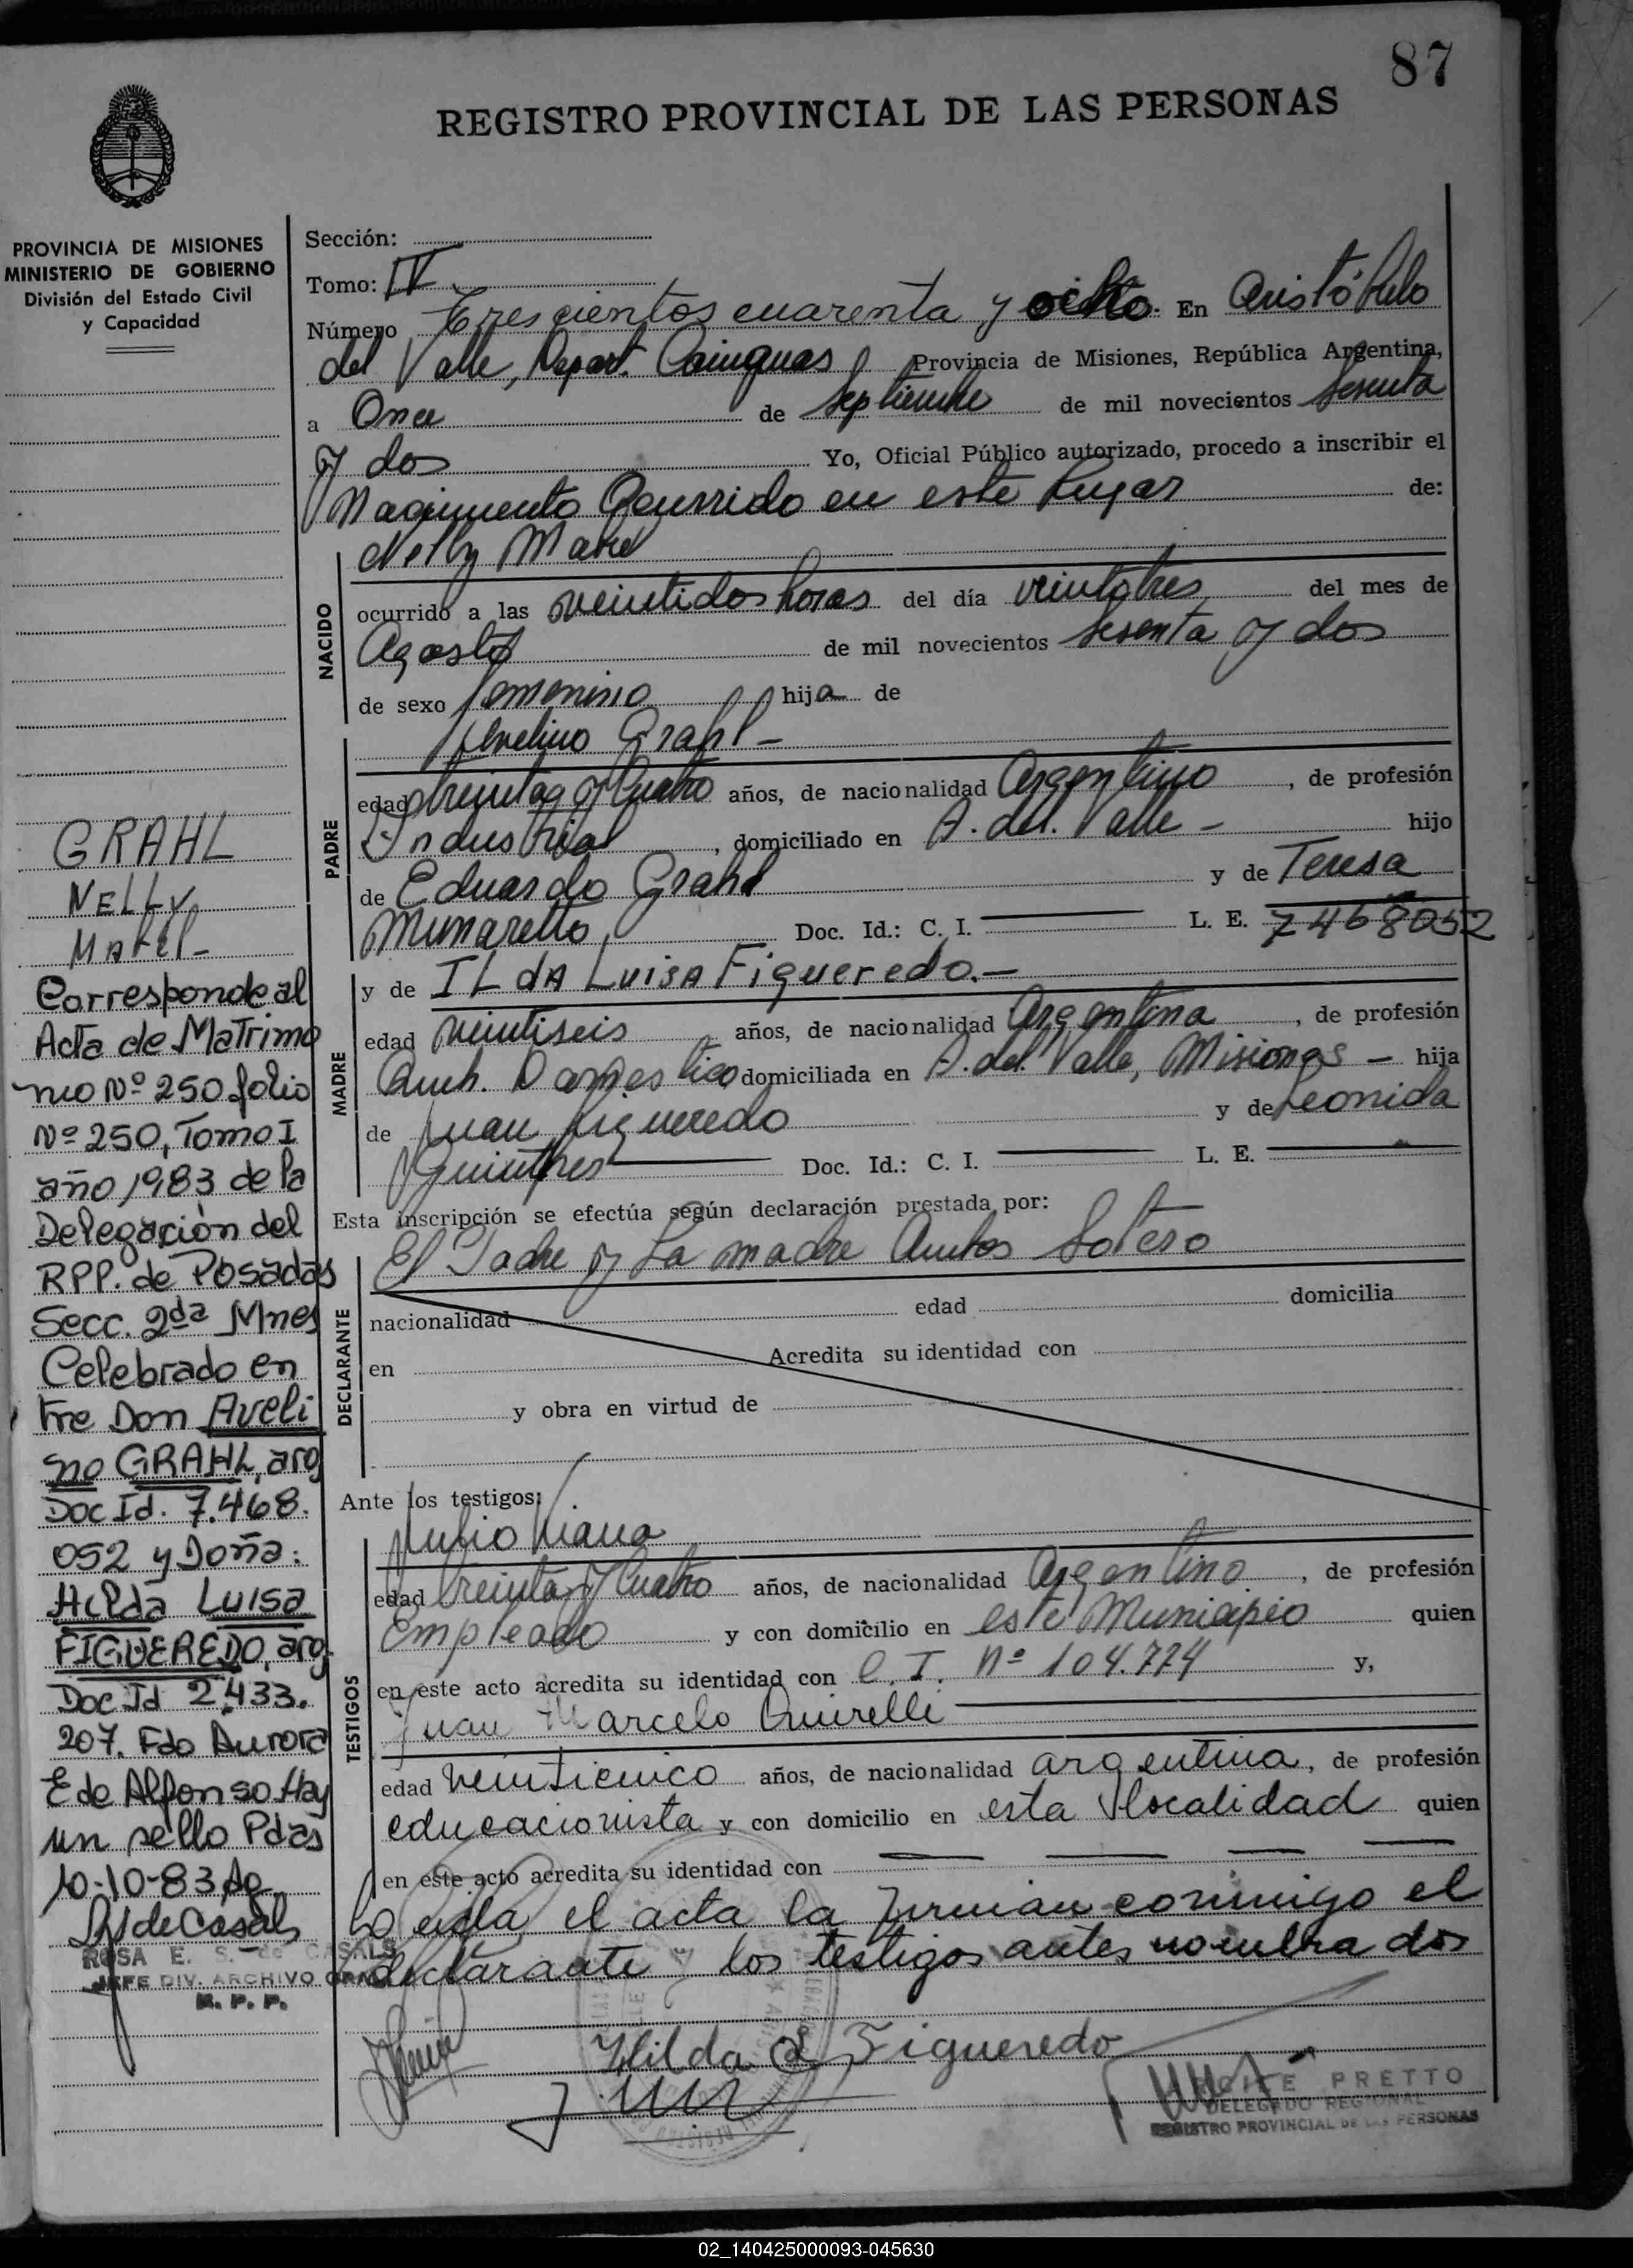 87
REGISTRO PROVINCIAL DE LAS PERSONAS
PROVINCIA DE MISIONES
MINISTERIO DE GOBIERNO
División del Estado Civil
y Capacidad
GRAHL
NELLY
MABEL-
Corresponde al
Acta de Matrimo
nio Nº 250 folio
Nº 250, Tomo I
año 1983 de la
Delegación del
RPP. de Posadas
Secc. 2da Mnes
Celebrado en
tre Don Aveli
no GRAHL, arg
Doc Id. 7.468.
052 y Doña:
Hilda Luisa
FIGUEREDO, arg.
Doc Id 2.433.
207. Fdo Aurora
E de Alfonso. Hay
un sello Pdas
10-10-83
ROSA E. S. de CASALS
JEFE DIV. ARCHIVO GRAL
R. P. P.
Sección:
Tomo: IV
Número Trescientos cuarenta y ocho. En Aristóbulo
del Valle, Depart. Cainguas Provincia de Misiones, República Argentina,
a Once de Septiembre de mil novecientos Sesenta
y dos Yo, Oficial Público autorizado, procedo a inscribir el
Nacimiento Ocurrido en este Lugar de:
Nelly Mabel
NACIDO
ocurrido a las veintidos horas del día veintitres del mes de
Agosto de mil novecientos sesenta y dos
de sexo femenino hija de
Avelino Grahl-
PADRE
edad treinta y Cuatro años, de nacionalidad Argentino, de profesión
Industrial, domiciliado en A. del. Valle - hijo
de Eduardo Grahl y de Teresa
Munaretto Doc. Id.: C. I. L. E. 7468052
y de ILdA LuisA Figueredo.-
MADRE
edad veintiseis años, de nacionalidad Argentina, de profesión
Queh. Domestico domiciliada en A. del. Valle, Misiones - hija
de Juan Figueredo y de Leonida
Doc. Id.: C. I. L. E.
Esta inscripción se efectúa según declaración prestada por:
El Padre y La madre
DECLARANTE
nacionalidad edad domicilia
en Acredita su identidad con
y obra en virtud de
Ante los testigos:
TESTIGOS
edad treinta y Cuatro años, de nacionalidad Argentino, de profesión
Empleado y con domicilio en este Municipio quien
en este acto acredita su identidad con C. I. Nº 104.774 y,
Juan Marcelo
edad veinticinco años, de nacionalidad argentina, de profesión
educacionista y con domicilio en esta localidad quien
en este acto acredita su identidad con
el acta la firman conmigo el
declarante los testigos antes nombrados
Hilda L Figueredo
PRETTO
DELEGADO REGIONAL
REGISTRO PROVINCIAL DE LAS PERSONAS
02_140425000093-045630